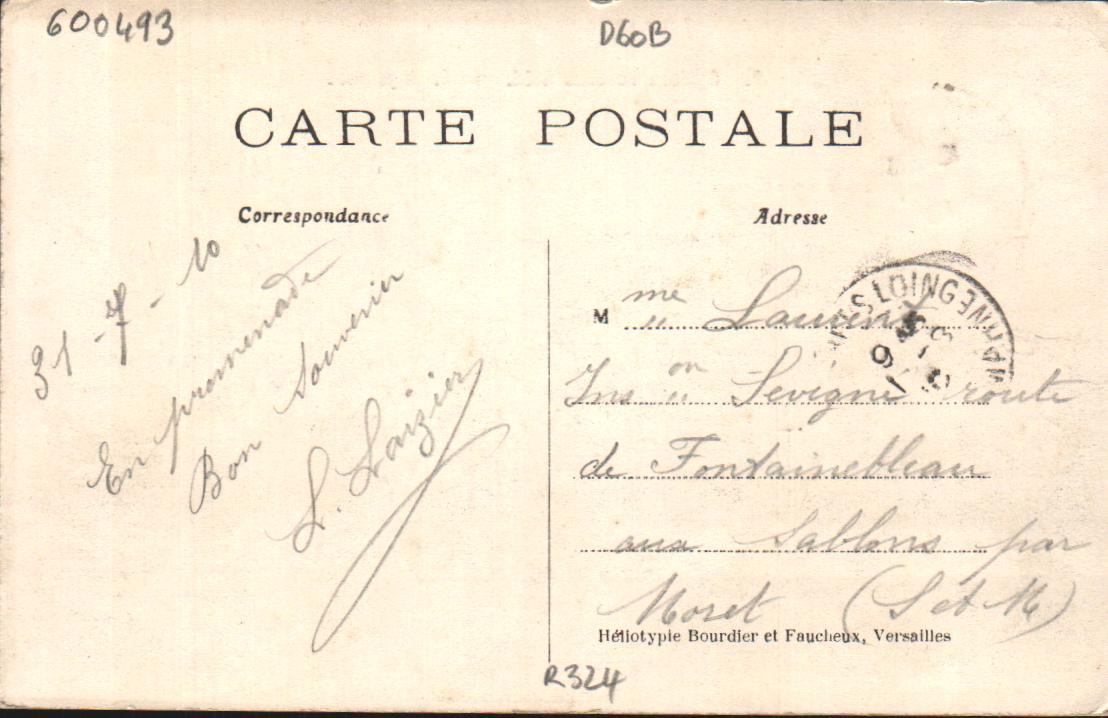 600493
D60B
CARTE POSTALE
Correspondance
Adresse
31-7-10
En promenade
Bon Souvenir
L. Laizier
M me " Laurent
Ins on " Sevigné route
de Fontainebleau
aux Sablons par
Moret (S et M)
Héliotypie Bourdier et Faucheux, Versailles
R324